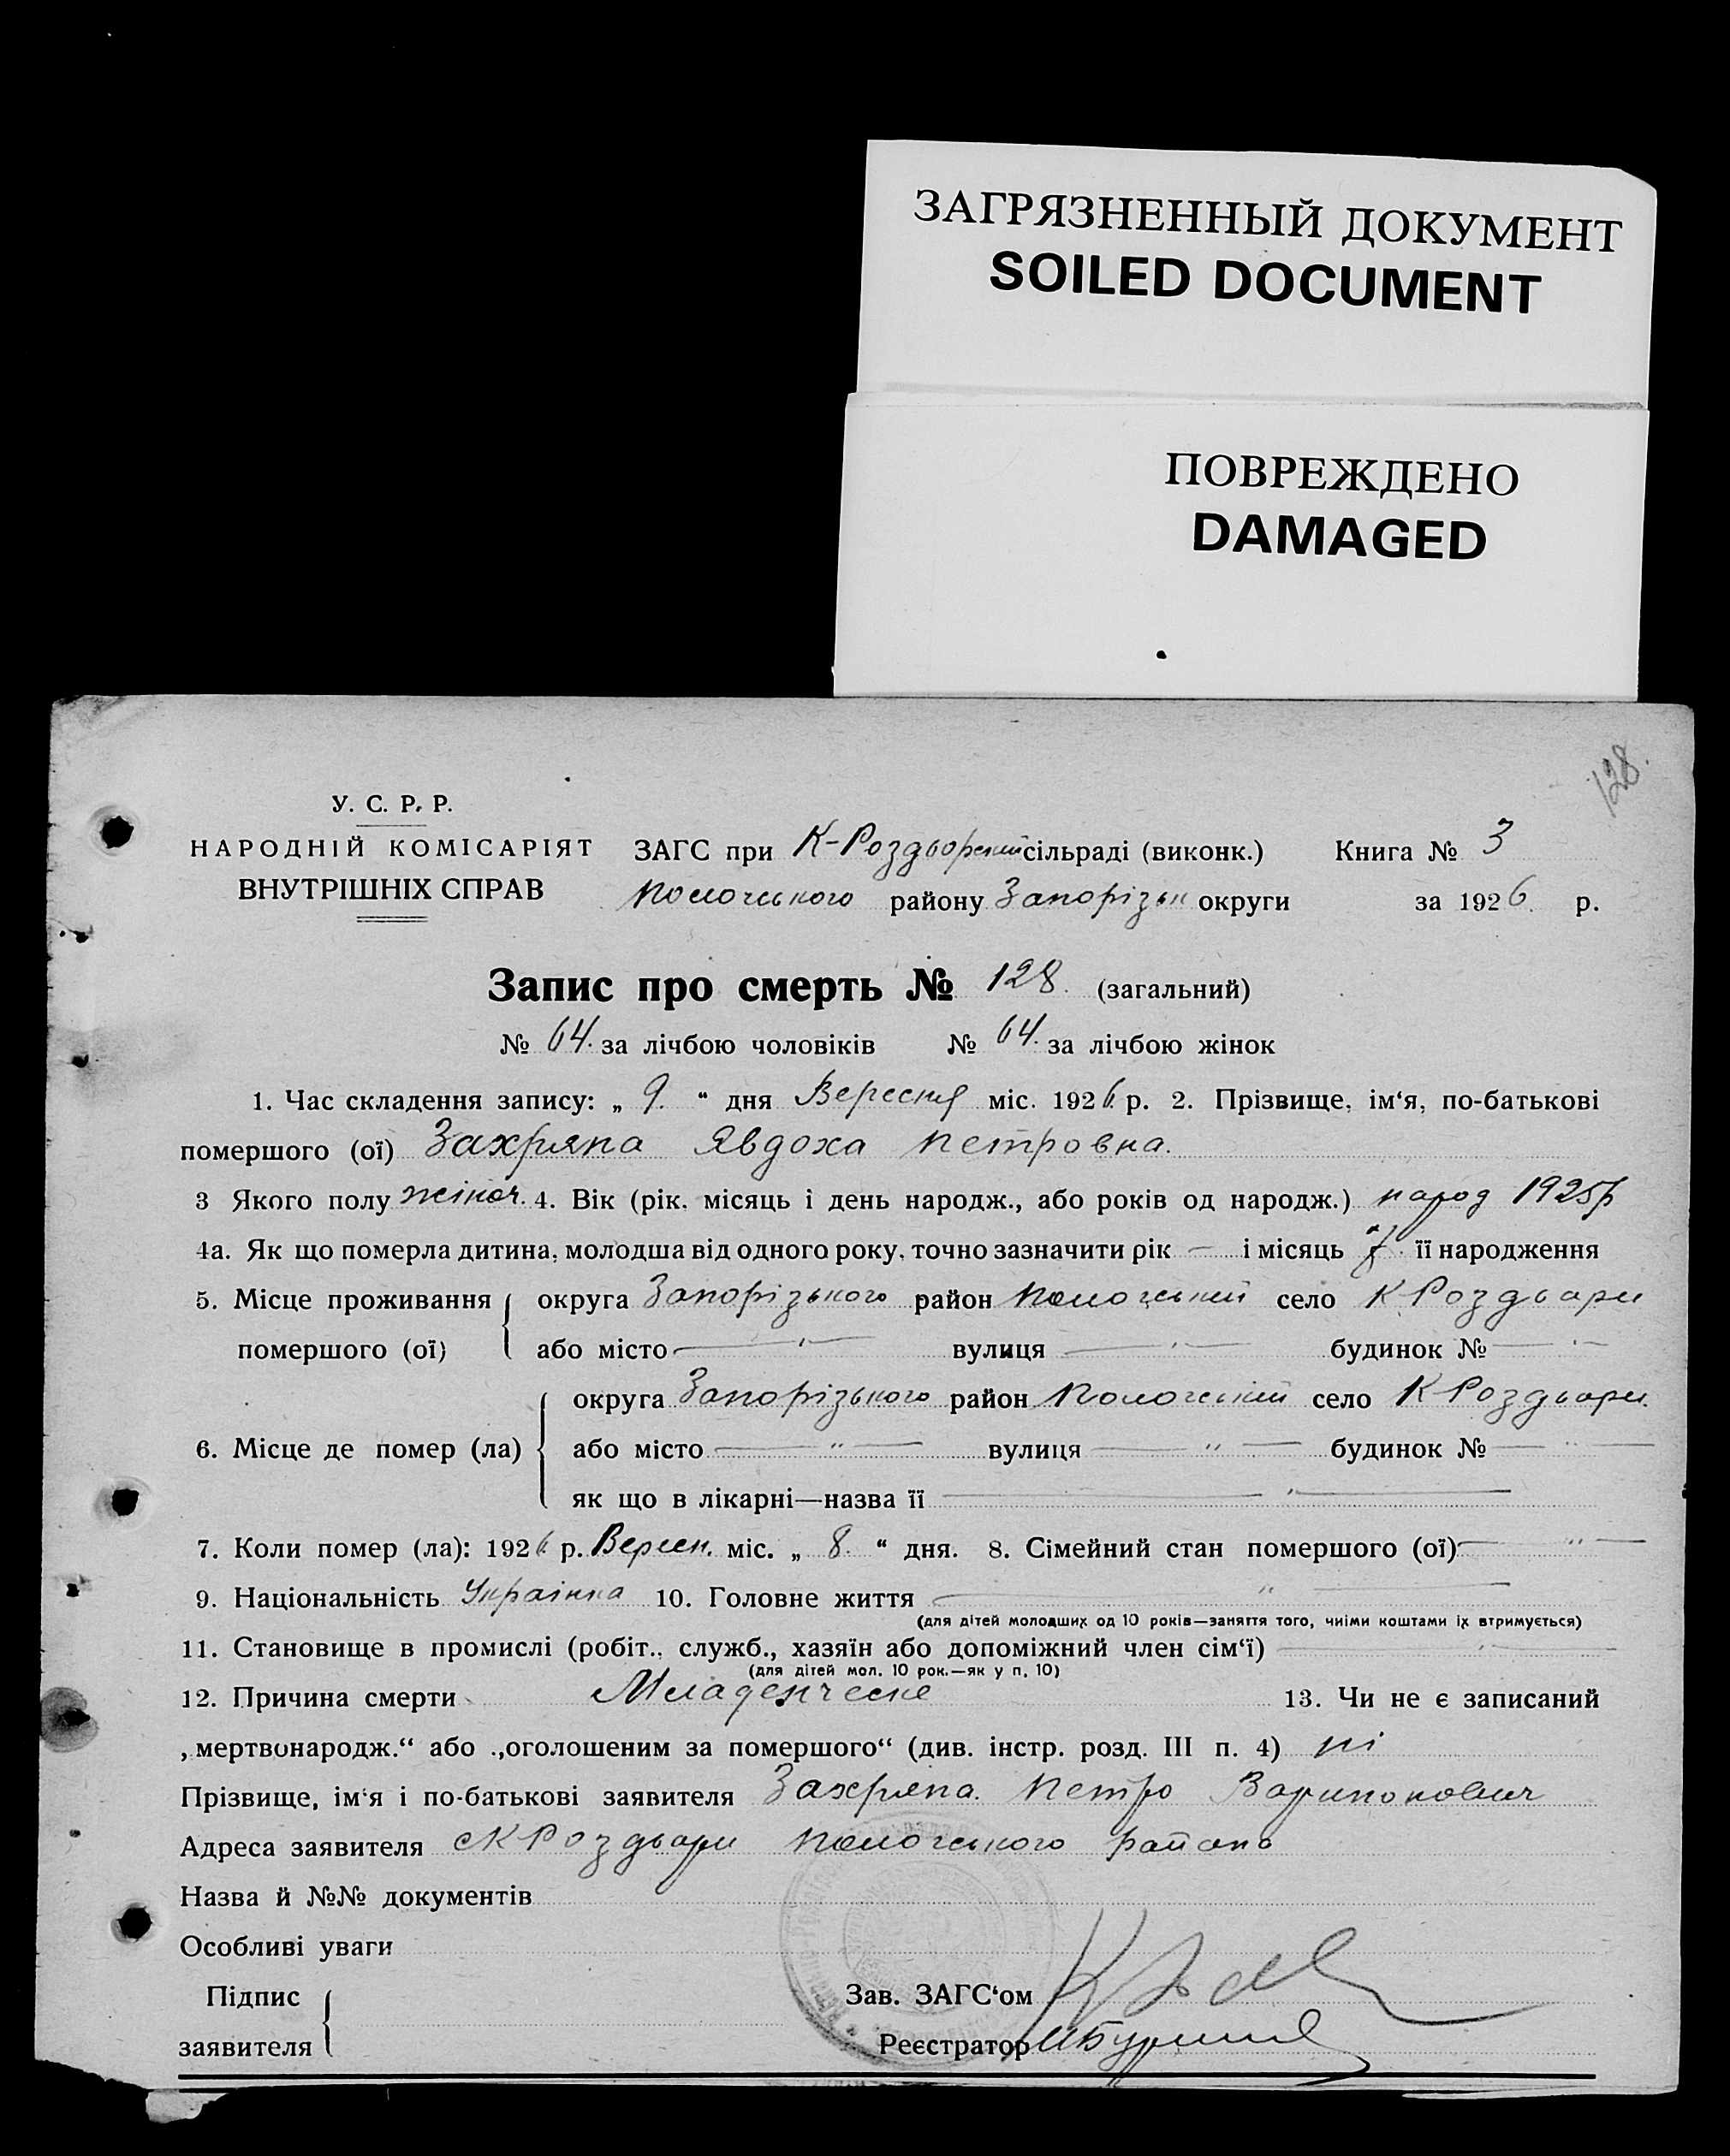 ЗАГРЯЗНЕННЫЙ ДОКУМЕНТ
SOILED DOCUMENT
ПОВРЕЖДЕНО
DAMAGED
128.
У. С. Р. Р.
НАРОДНІЙ КОМІСАРІЯТ
ВНУТРІШНІХ СПРАВ
ЗАГС при К-Роздорський сільраді (виконк.) Книга № 3
Пологського району Запорізьк округи за 1926 р.
Запис про смерть № 128. (загальний)
№ 64. за лічбою чоловіків № 64. за лічбою жінок
1. Час складення запису: „ 9. “ дня Вересня міс. 1926 р. 2. Прізвище, ім‘я, по-батькові
помершого (ої) Захряпа Явдоха Петровна.
3 Якого полу жіноч. 4. Вік (рік, місяць і день народж., або років од народж.) народ 1925р
4а. Як що померла дитина, молодша від одного року, точно зазначити рік — і місяць 7 її народження
5. Місце проживання округа Запорізького район Пологський село К Роздори
помершого (ої) або місто — " — вулиця — " — будинок № — " —
округа Запорізького район Пологський село К Роздори.
6. Місце де помер (ла) або місто — " — вулиця — " — будинок № — " —
як що в лікарні—назва її — " —
7. Коли помер (ла): 1926 р. Вересн. міс. „ 8. “ дня. 8. Сімейний стан помершого (ої) — " —
9. Національність Українка 10. Головне життя — " —
(для дітей молодших од 10 років—заняття того, чиїми коштами їх втримується)
11. Становище в промислі (робіт., служб., хазяїн або допоміжний член сім‘ї) — " —
(для дітей мол. 10 рок.—як у п. 10)
12. Причина смерти Младенческе 13. Чи не є записаний
„мертвонародж.“ або „оголошеним за помершого“ (див. інстр. розд. III п. 4) ні
Прізвище, ім‘я і по-батькові заявителя Захряпа. Петро
Адреса заявителя с К Роздори Пологського району
Назва й №№ документів
Особливі уваги
Підпис
заявителя
Зав. ЗАГС‘ом
Реєстратор